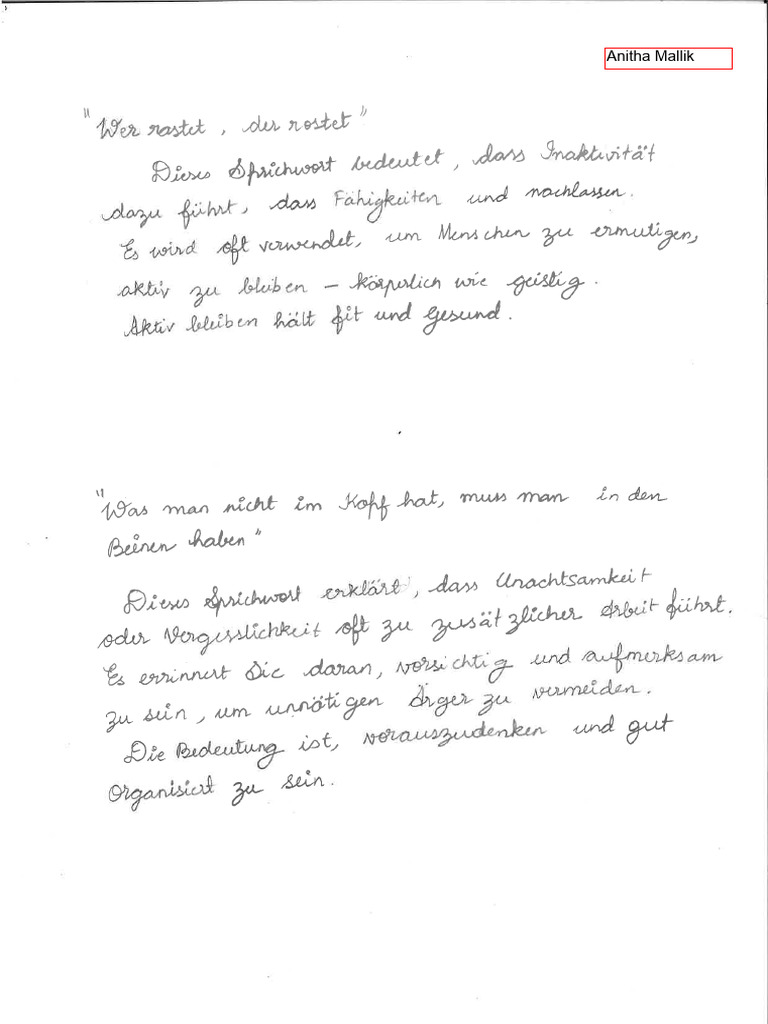 Anitha Mallik
"Wer rastet, der rostet"
Dieses Sprichwort bedeutet, dass Inaktivität
dazu führt, dass Fähigkeiten und nachlassen.
Es wird oft verwendet, um Menschen zu ermutigen,
aktiv zu bleiben – körperlich wie geistig.
Aktiv bleiben hält fit und Gesund.
"Was man nicht im Kopf hat, muss man in den
Beinen haben"
Dieses Sprichwort erklärt, dass Unachtsamkeit
oder Vergesslichkeit oft zu zusätzlicher Arbeit führt.
Es errinnert Sie daran, vorsichtig und aufmerksam
zu sein, um unnötigen Ärger zu vermeiden.
Die Bedeutung ist, vorauszudenken und gut
Organisiert zu sein.